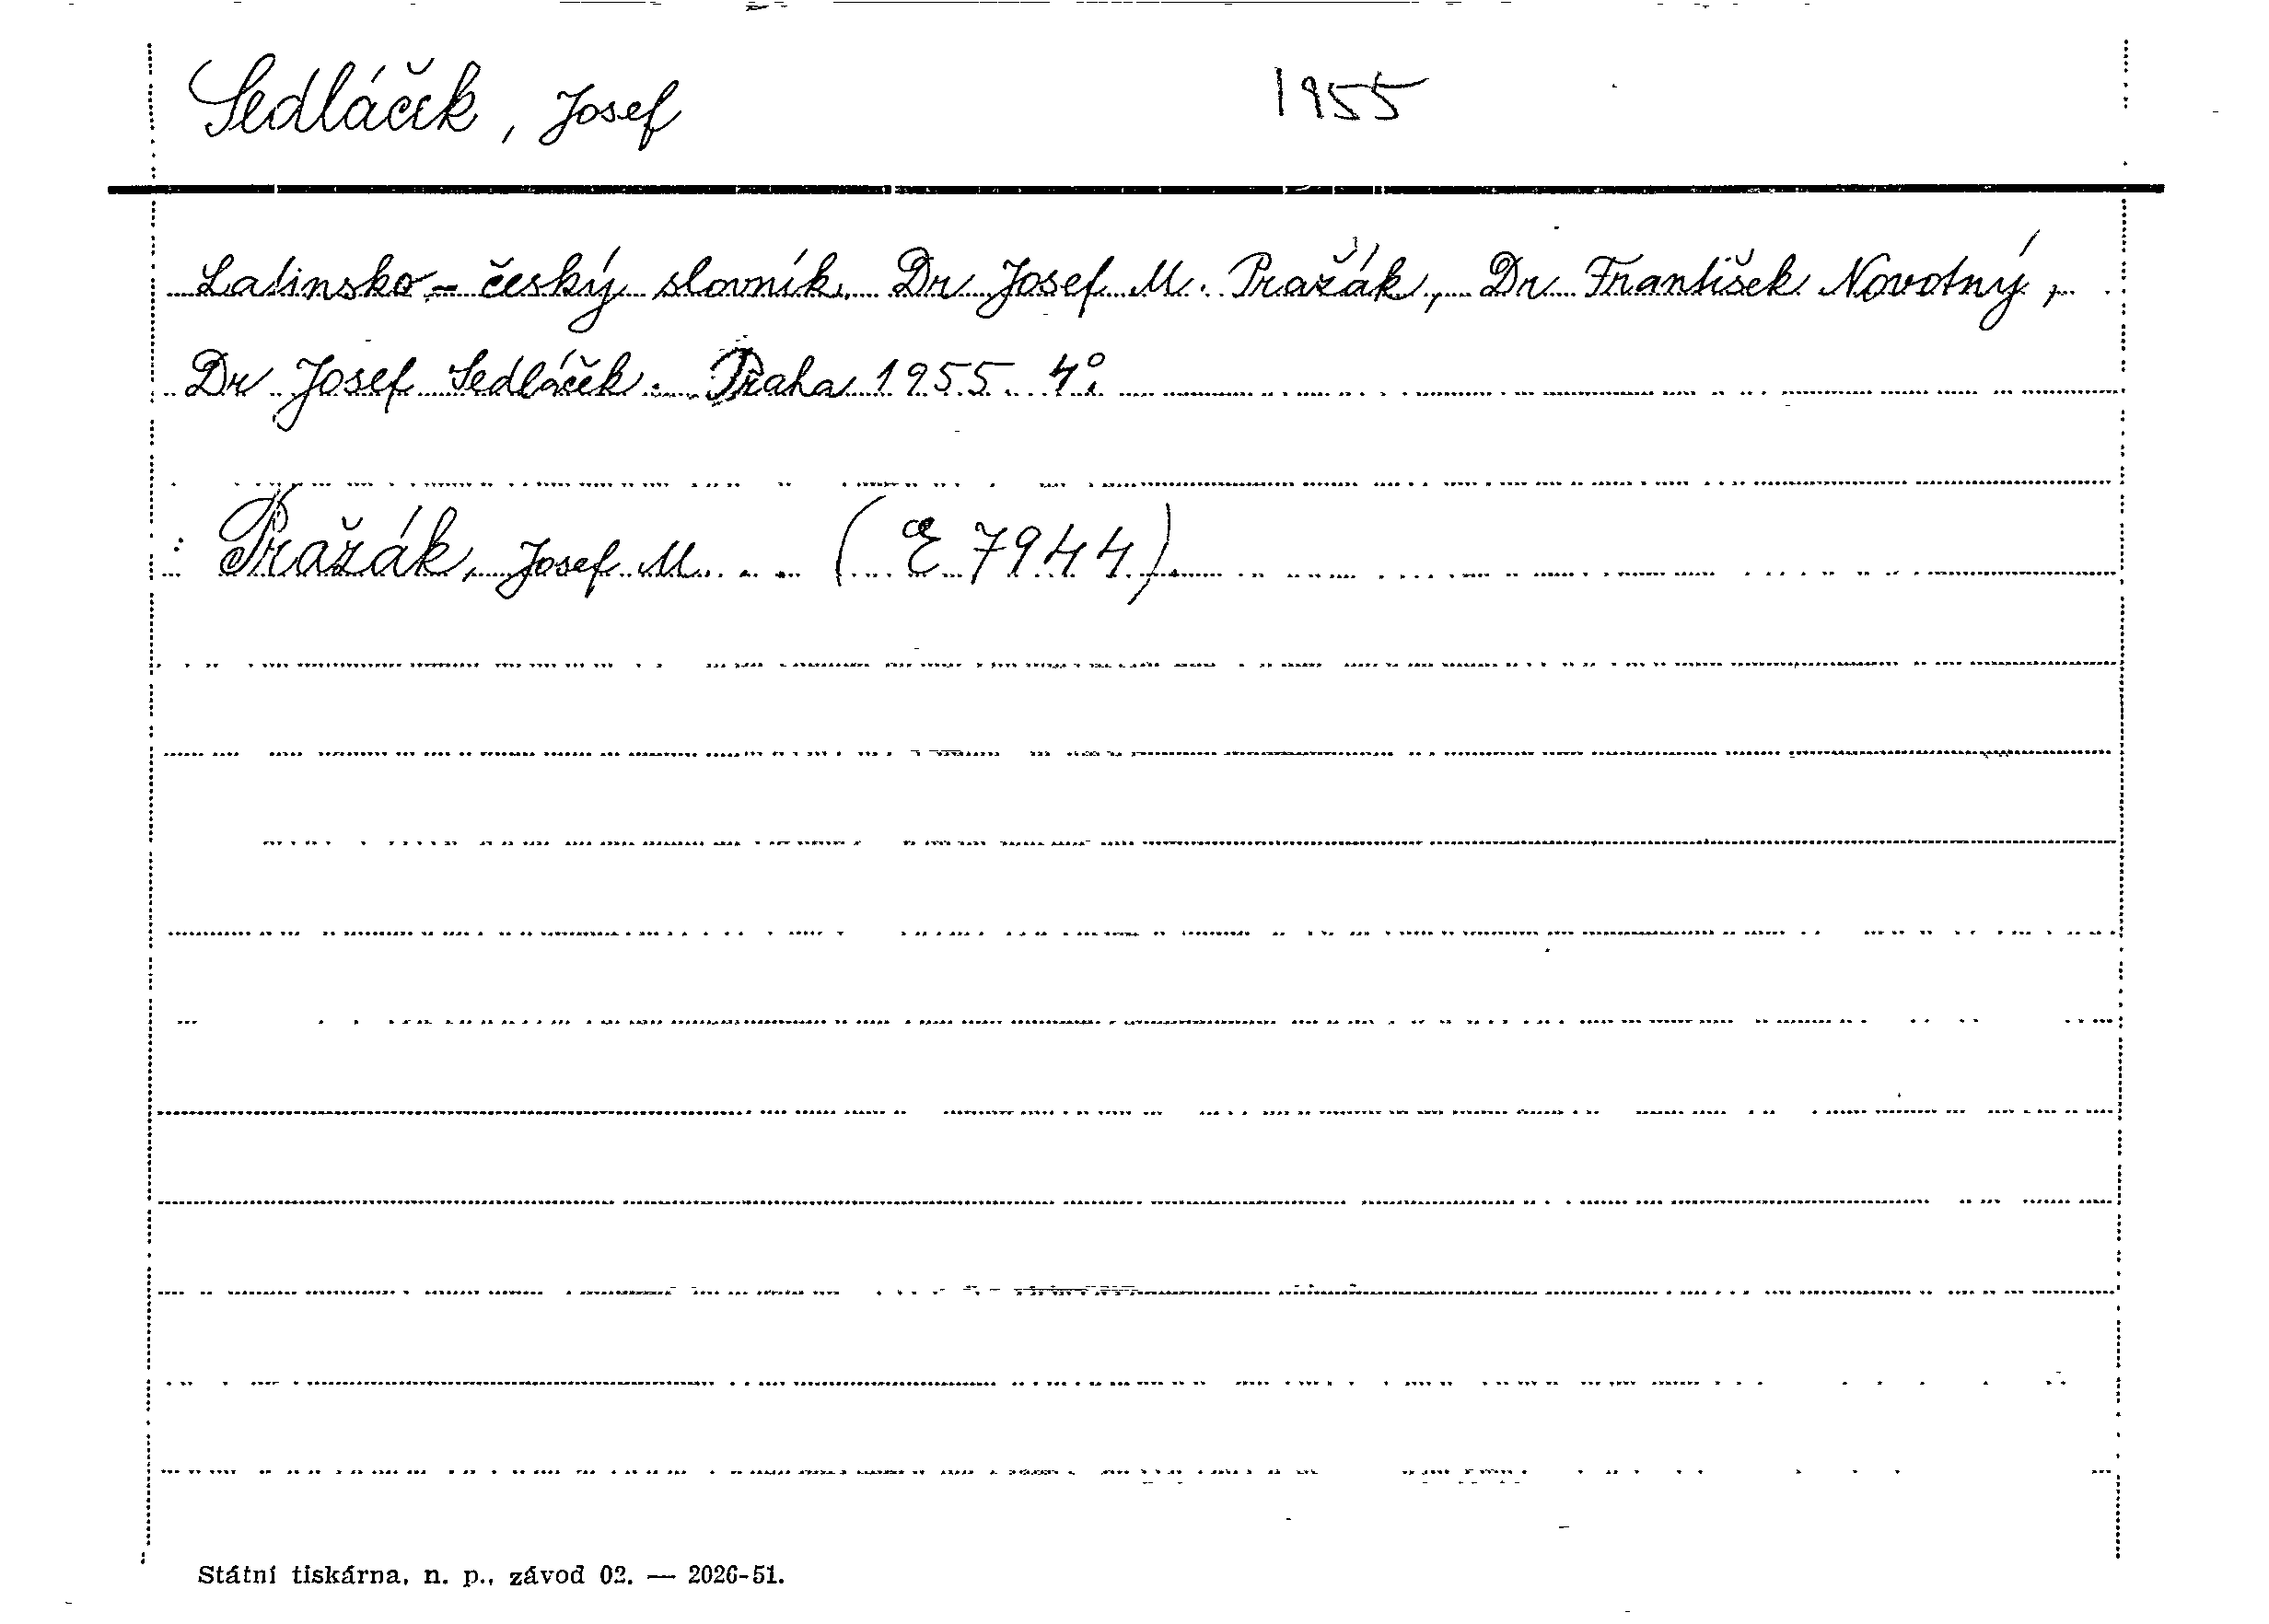 Sedláček, Josef 1955
Latinsko-český slovník. Dr Josef M. Pražák, Dr František Novotný,
Dr Josef Sedláček. Praha 1955. 4°.
: Pražák, Josef M. .. (E 7944)
Státní tiskárna, n. p., závod 02. — 2026-51.